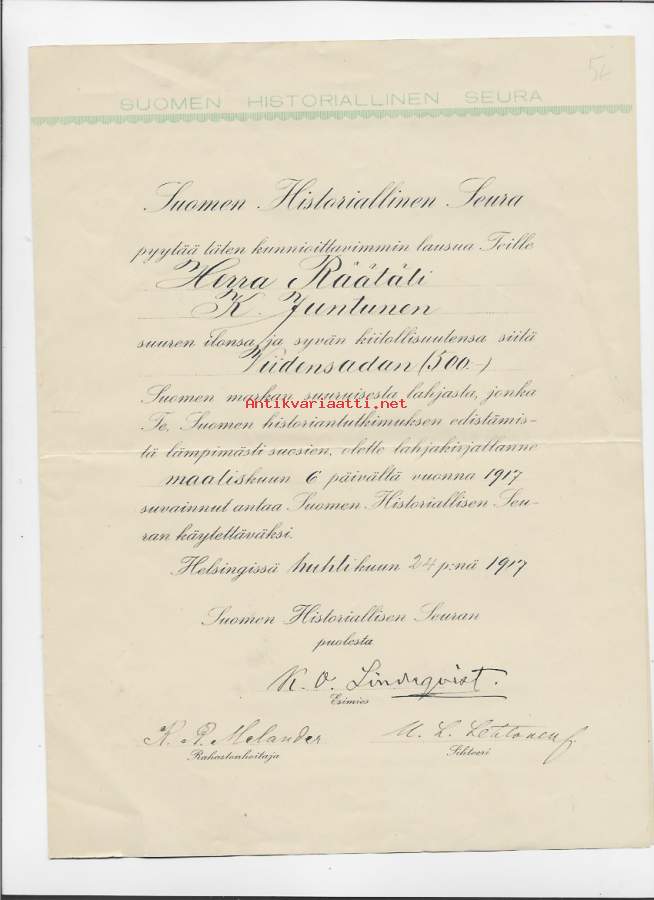 52
SUOMEN HISTORIALLINEN SEURA
Suomen Historiallinen Seura
pyytää täten kunnioittavimmin lausua Teille
Herra Räätäli
K. Juntunen
suuren ilonsa ja syvän kiitollisuutensa siitä
Viidensadan (500:-)
Suomen markan suuruisesta lahjasta, jonka
Antikvariaatti.net
Te, Suomen historiantutkimuksen edistämis-
tä lämpimästi suosien, olette lahjakirjallanne
maaliskuun 6 päivältä vuonna 1917
suvainnut antaa Suomen Historiallisen Seu-
ran käytettäväksi.
Helsingissä huhtikuun 24 p:nä 1917
Suomen Historiallisen Seuran
puolesta
K. O. Lindeqvist.
Esimies
K. R. Melander
Rahastonhoitaja
U. L. Lehtonen
Sihteeri